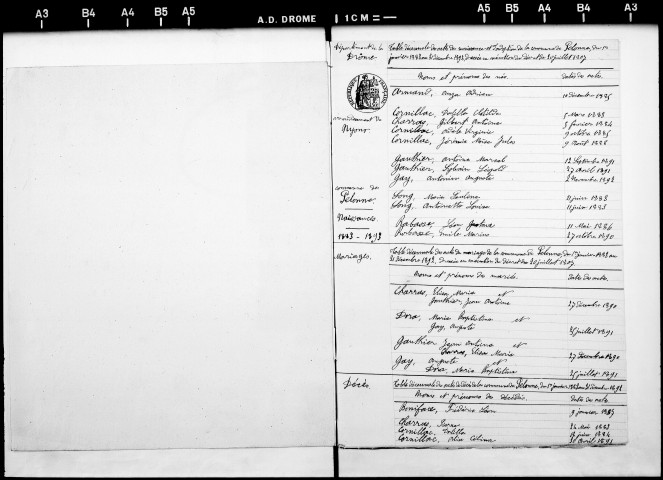 A3 B4 A4 B5 A5
A.D. DROME
1 CM
A5 B5 A4 B4 A3
Département de la Drôme
Table décennale des actes de naissance et d'adoption de la commune de Pelonne, du 1er
janvier 1883 au 31 décembre 1892, dressée en exécution du décret du 20 juillet 1807
Noms et prénoms des nés. Date des actes.
Armand, Auza Adrien 10 décembre 1885
arrondissement de Nyons
Cornillac, 5 Mars 1883
Charras, Gilbert Antoine 5 février 1884
Cornillac, Adèle Virginie 9 octobre 1885
Cornillac, Jérémie Moïse Jules 9 Août 1888
Gauthier, Antoine Marcel 12 Septembre 1891
Gauthier, Sylvain Léopold 27 avril 1891
Gay, Antonin Auguste 2 Novembre 1892
commune de Pelonne
Long, Maria 11 juin 1883
Long, Antoinette Louise 11 juin 1883
Naissances.
Rabasse, Léon 11 Mai 1884
Rabasse, Emile Marius 27 octobre 1890
1883 - 1893
Mariages.
Table décennale des actes de mariage de la commune de Pelonne, du 1er janvier 1883 au
31 décembre 1892, dressée en exécution du décret du 20 juillet 1807
Noms et prénoms des mariés. Date des actes.
Charras, Elisa Maria et
Gauthier, Jean Antoine 27 décembre 1890
Dora, Maria Baptistine et
Gay, Auguste 25 juillet 1891
Gauthier Jean Antoine et
Charras, Elisa Maria 27 décembre 1890
Gay, Auguste et
Dora, Maria Baptistine 25 juillet 1891
Décès.
Table décennale des actes de décès de la commune de Pelonne, du 1er janvier 1883 au 31 décembre 1892
Noms et prénoms des décédés. Date des actes.
Boniface, Frédéric Léon 9 janvier 1885
Charras, 24 Mai 1883
Cornillac, juin 1884
Cornillac, Célina avril 1891
A3 B4 A4 B5 A5
A5 B5 A4 B4 A3